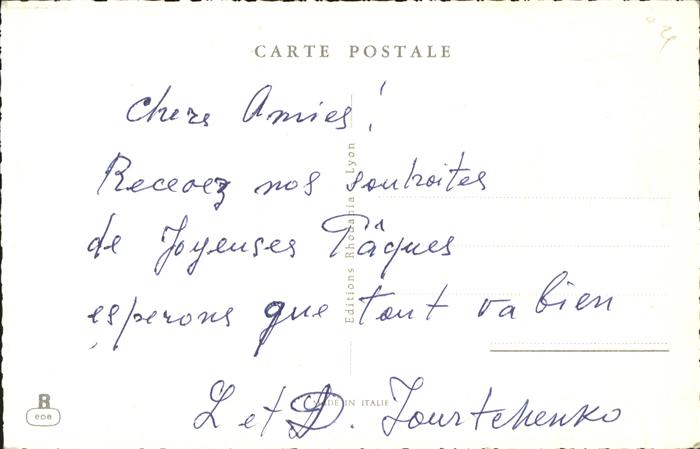 CARTE POSTALE
Chers Amies!
Recevez nos souhaites
de Joyeuses Pâques
esperons que tout va bien
L et D. Jourtchenko
Editions Rhodania Lyon
MADE IN ITALIE
R
608